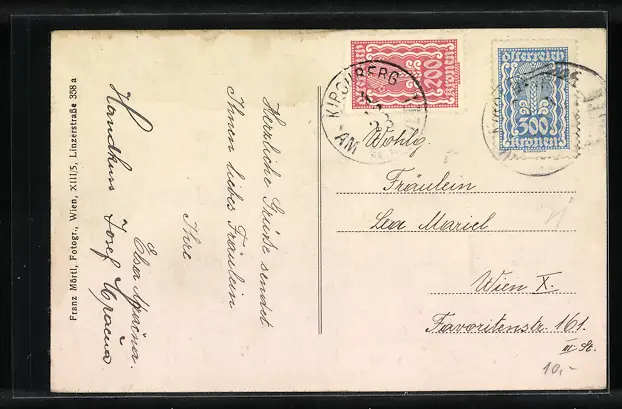 Franz Mörtl, Fotogr., Wien, XIII/5, Linzerstraße 358 a
Herzliche Grüße sendet
Ihnen liebes Fräulein
Ihre
Elsa
Handkuss Josef
200
Kronen
Österreich
300
Kronen
KIRCHBERG
AM
Wohlg.
Fräulein
Lea Mariel
Wien X.
Favoritenstr. 161.
III St.
10,-